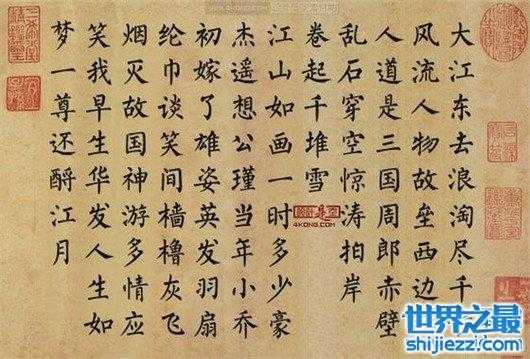 大江东去浪淘尽千
风流人物故垒西边
人道是三国周郎赤壁
乱石穿空惊涛拍岸
卷起千堆雪
江山如画一时多少豪
杰遥想公瑾当年小乔
初嫁了雄姿英发羽扇
纶巾谈笑间樯橹灰飞
烟灭故国神游多情应
笑我早生华发人生如
梦一尊还酹江月
4KONG.COM
世界之最
shijiezzi.com